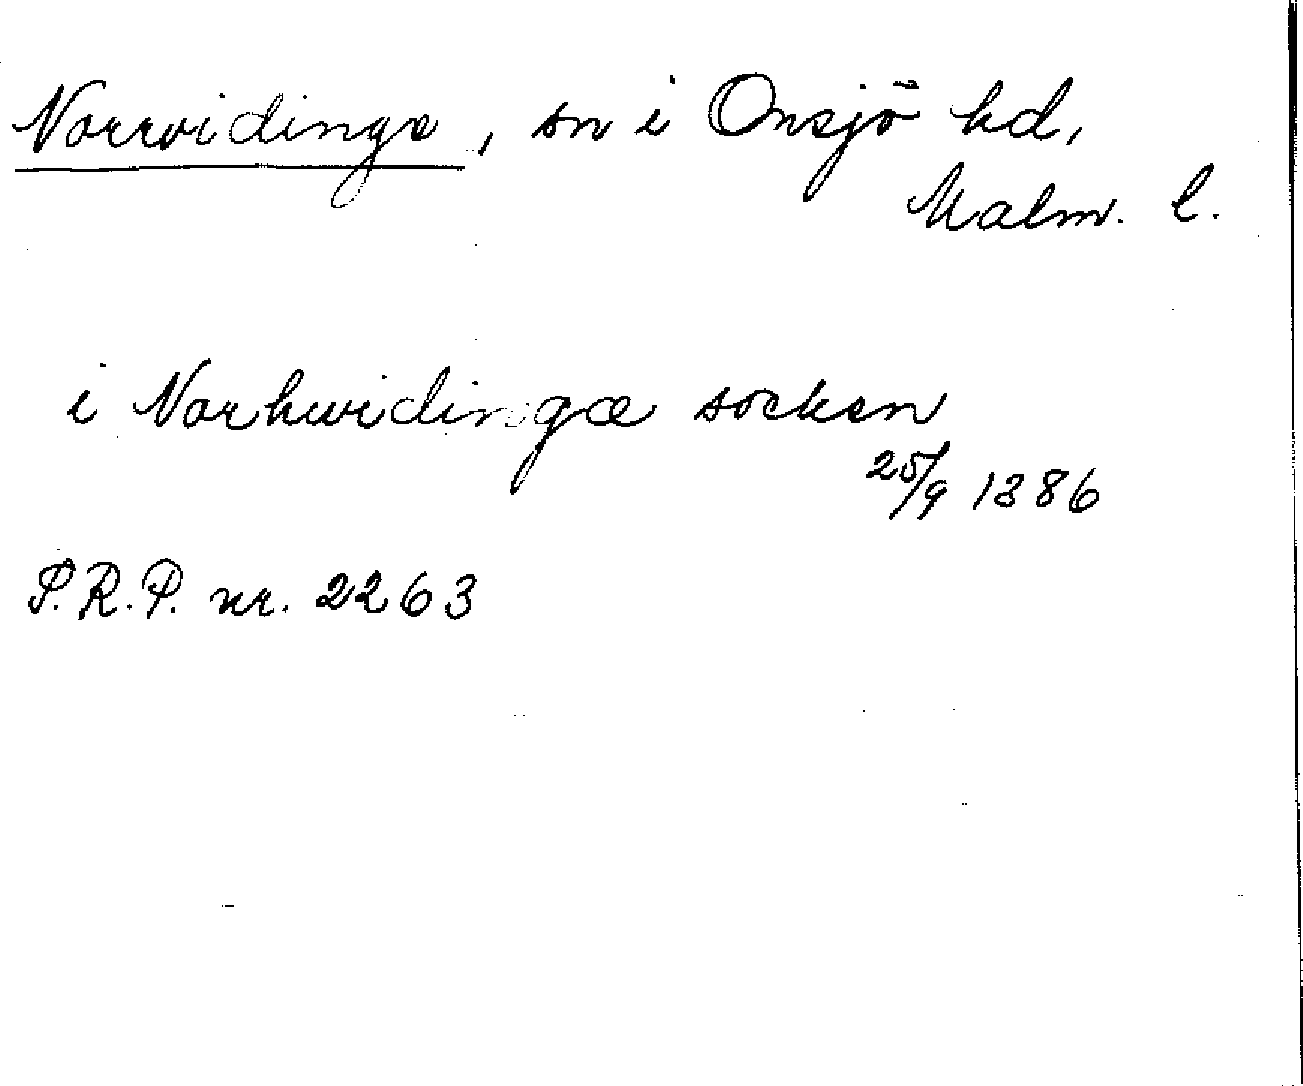 Norrvidinge, sn i Onsjö hd,
Malm. l.
i Norhwidingæ socken
25/9 1386
P.R.P. nr. 2263